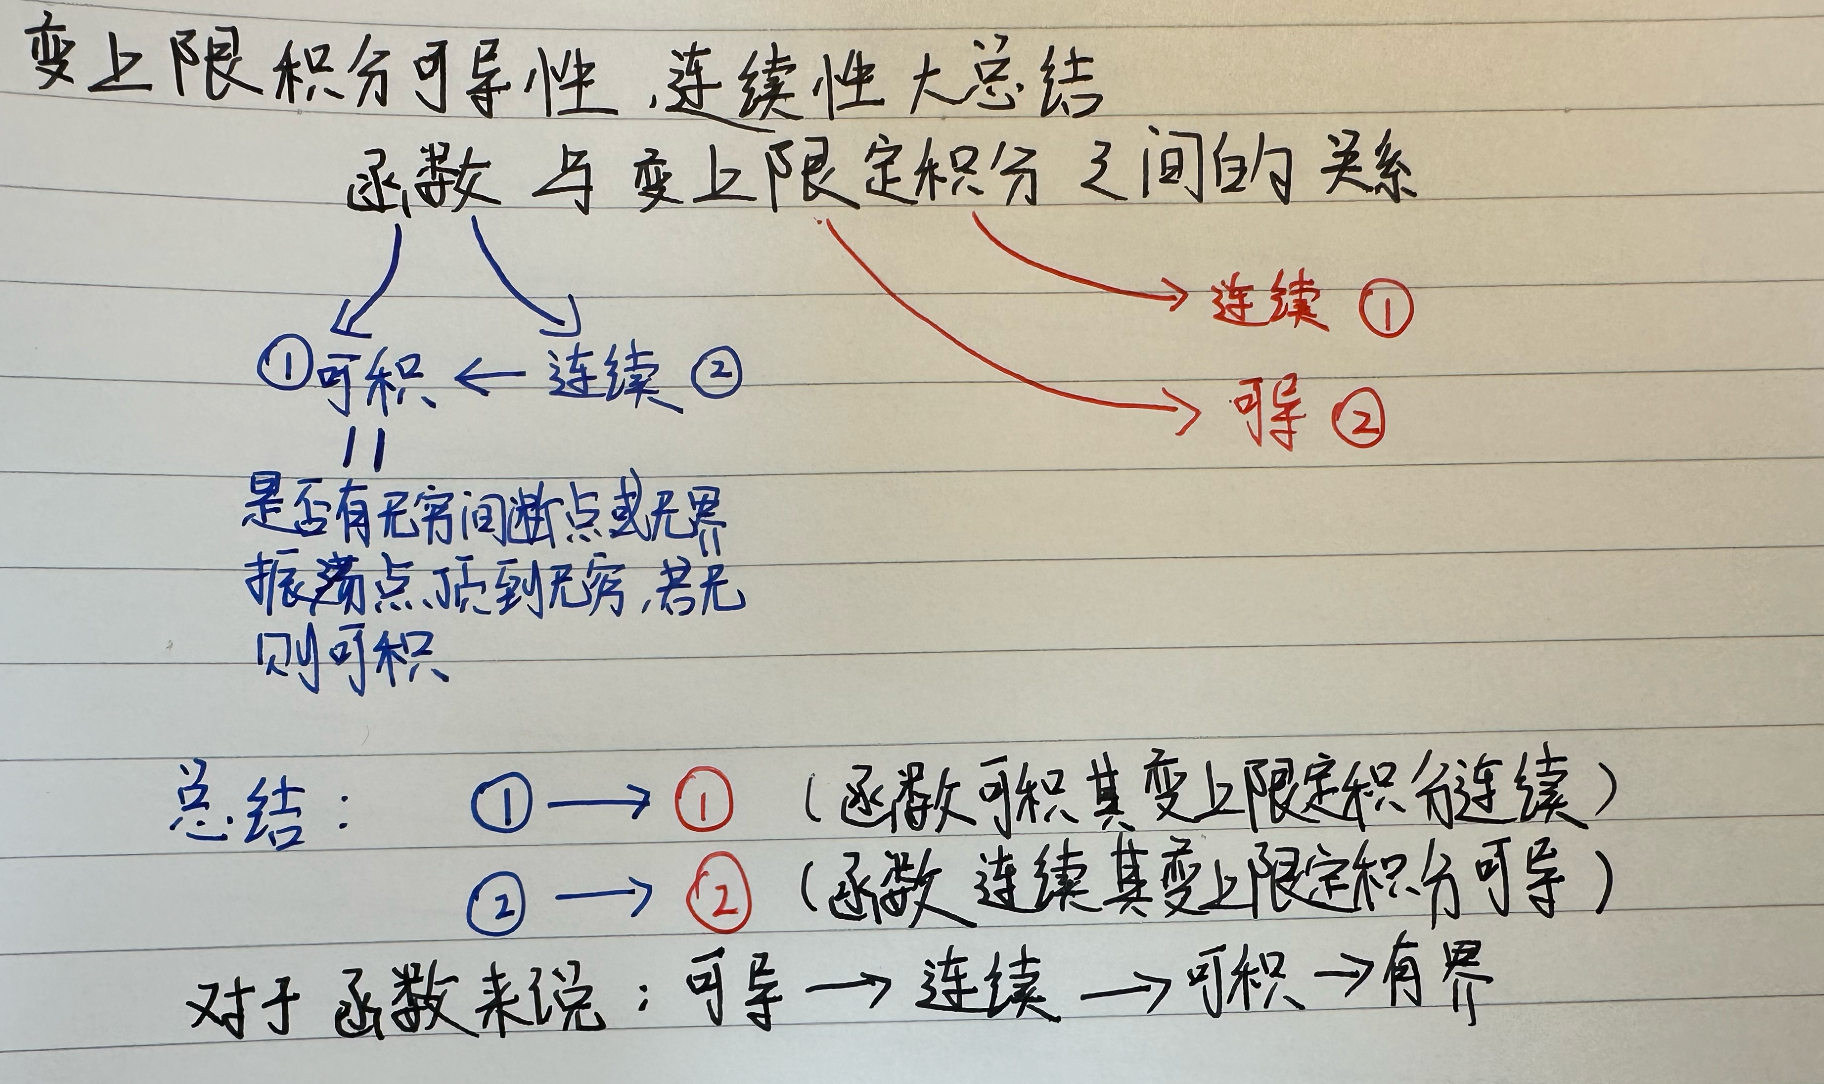 变上限积分可导性、连续性大总结
函数与变上限定积分之间的关系
连续 ①
①可积 ← 连续 ②
可导 ②
||
是否有无穷间断点或无界
振荡点、顶到无穷,若无
则可积
总结: ① → ① (函数可积其变上限定积分连续)
② → ② (函数连续其变上限定积分可导)
对于函数来说:可导 → 连续 → 可积 → 有界